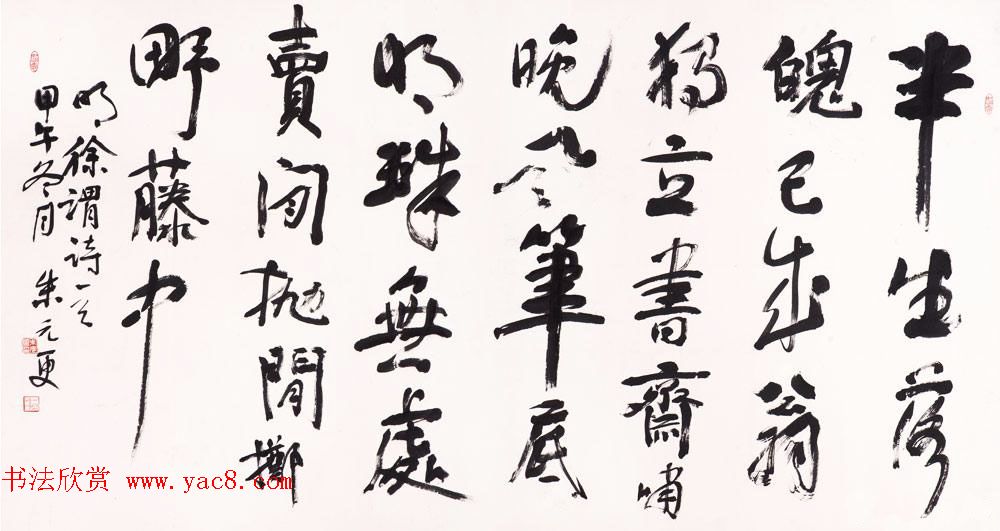 半生落
魄已成翁
独立書齋嘯
晚风筆底
明珠無處
賣闲抛閒擲
野藤中
明徐謂詩一首
甲午冬月 朱元更
书法欣赏 www.yac8.com